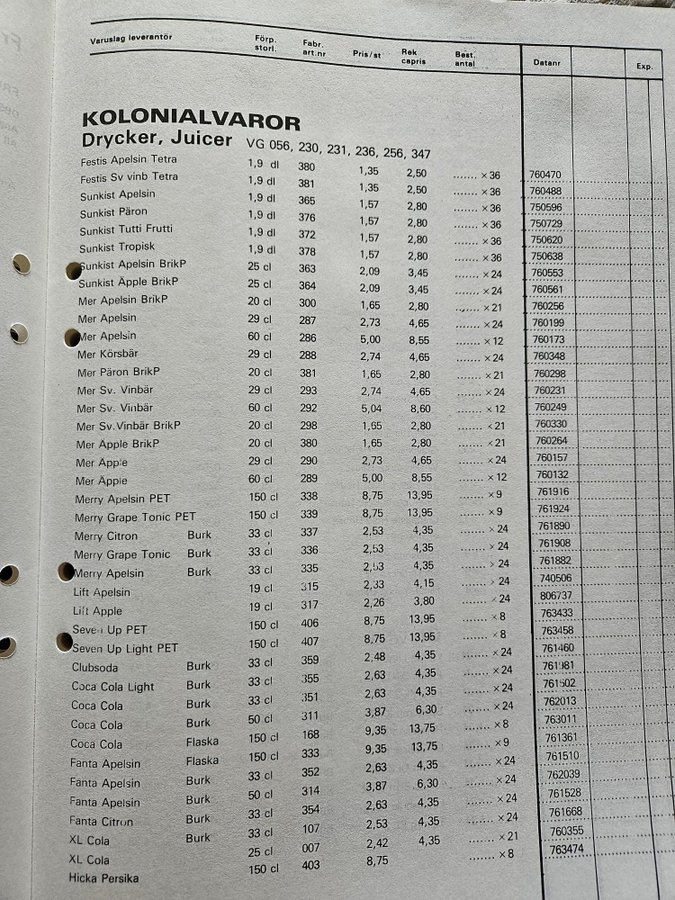 Varuslag leverantör Förp. storl. Fabr. art.nr Pris/st Rek. capris Best. antal Datanr Exp.
KOLONIALVAROR
Drycker, Juicer VG 056, 230, 231, 236, 256, 347
Festis Apelsin Tetra 1,9 dl 380 1,35 2,50 ....... ×36 760470
Festis Sv vinb Tetra 1,9 dl 381 1,35 2,50 ....... ×36 760488
Sunkist Apelsin 1,9 dl 365 1,57 2,80 ....... ×36 750596
Sunkist Päron 1,9 dl 376 1,57 2,80 ....... ×36 750729
Sunkist Tutti Frutti 1,9 dl 372 1,57 2,80 ....... ×36 750620
Sunkist Tropisk 1,9 dl 378 1,57 2,80 ....... ×36 750638
Sunkist Apelsin BrikP 25 cl 363 2,09 3,45 ....... ×24 760553
Sunkist Äpple BrikP 25 cl 364 2,09 3,45 ....... ×24 760561
Mer Apelsin BrikP 20 cl 300 1,65 2,80 ....... ×21 760256
Mer Apelsin 29 cl 287 2,73 4,65 ....... ×24 760199
Mer Apelsin 60 cl 286 5,00 8,55 ....... ×12 760173
Mer Körsbär 29 cl 288 2,74 4,65 ....... ×24 760348
Mer Päron BrikP 20 cl 381 1,65 2,80 ....... ×21 760298
Mer Sv. Vinbär 29 cl 293 2,74 4,65 ....... ×24 760231
Mer Sv. Vinbär 60 cl 292 5,04 8,60 ....... ×12 760249
Mer Sv.Vinbär BrikP 20 cl 298 1,65 2,80 ....... ×21 760330
Mer Äpple BrikP 20 cl 380 1,65 2,80 ....... ×21 760264
Mer Äpple 29 cl 290 2,73 4,65 ....... ×24 760157
Mer Äpple 60 cl 289 5,00 8,55 ....... ×12 760132
Merry Apelsin PET 150 cl 338 8,75 13,95 ....... ×9 761916
Merry Grape Tonic PET 150 cl 339 8,75 13,95 ....... ×9 761924
Merry Citron Burk 33 cl 337 2,53 4,35 ....... ×24 761890
Merry Grape Tonic Burk 33 cl 336 2,53 4,35 ....... ×24 761908
Merry Apelsin Burk 33 cl 335 2,53 4,35 ....... ×24 761882
Lift Apelsin 19 cl 315 2,33 4,15 ....... ×24 740506
Lift Äpple 19 cl 317 2,26 3,80 ....... ×24 806737
Seven Up PET 150 cl 406 8,75 13,95 ....... ×8 763433
Seven Up Light PET 150 cl 407 8,75 13,95 ....... ×8 763458
Clubsoda Burk 33 cl 359 2,48 4,35 ....... ×24 761460
Coca Cola Light Burk 33 cl 355 2,63 4,35 ....... ×24 761981
Coca Cola Burk 33 cl 351 2,63 4,35 ....... ×24 761502
Coca Cola Burk 50 cl 311 3,87 6,30 ....... ×24 762013
Coca Cola Flaska 150 cl 168 9,35 13,75 ....... ×8 763011
Fanta Apelsin Flaska 150 cl 333 9,35 13,75 ....... ×9 761361
Fanta Apelsin Burk 33 cl 352 2,63 4,35 ....... ×24 761510
Fanta Apelsin Burk 50 cl 314 3,87 6,30 ....... ×24 762039
Fanta Citron Burk 33 cl 354 2,63 4,35 ....... ×24 761528
XL Cola Burk 33 cl 107 2,53 4,35 ....... ×24 761668
XL Cola 25 cl 007 2,42 4,35 ....... ×21 760355
Hicka Persika 150 cl 403 8,75 ....... ×8 763474